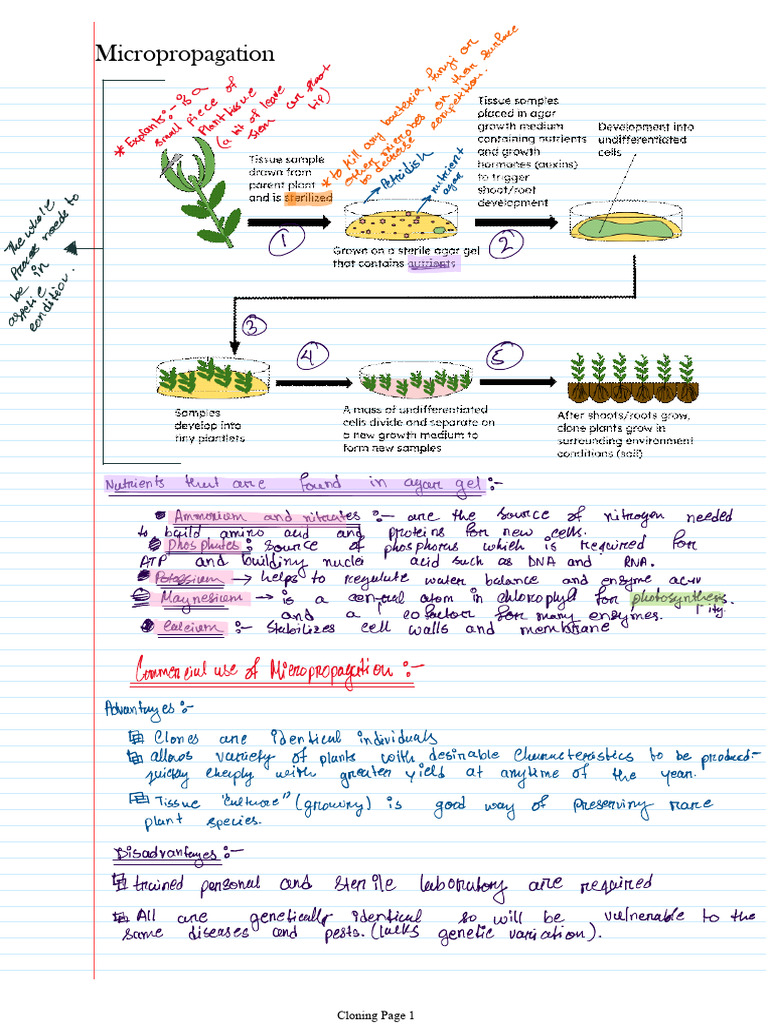 Micropropagation
* Explants:- is a
small piece of
Plant tissue
(a bit of leave
stem or shoot
tip)
* to kill any bacteria, fungi or
other microbes on their surface
to decrease competition.
Tissue sample
drawn from
parent plant
and is sterilized
Petridish
nutrient
agar
Tissue samples
placed in agar
growth medium
containing nutrients
and growth
hormones (auxins)
to trigger
shoot/root
development
Development into
undifferentiated
cells
1
Grown on a sterile agar gel
that contains nutrients
2
The whole
Process needs to
be in
aseptic
condition.
3
4
5
Samples
develop into
tiny plantlets
A mass of undifferentiated
cells divide and separate on
a new growth medium to
form new samples
After shoots/roots grow,
clone plants grow in
surrounding environment
conditions (soil)
Nutrients that are found in agar gel:-
Ammonium and nitrates :- are the source of nitrogen needed
to build amino acid and proteins for new cells.
Phosphates: source of phosphorus which is required for
ATP and building nucleic acid such as DNA and RNA.
Potassium → helps to regulate water balance and enzyme activity
Magnesium → is a central atom in chlorophyl for photosynthesis.
and a cofactor for many enzymes.
Calcium :- Stabilizes cell walls and membrane
Commercial use of Micropropagation :-
Advantages:-
Clones are identical individuals
allows variety of plants with desirable characteristics to be produc-
quickly cheaply with greater yield at anytime of the year.
Tissue "culture" (growing) is good way of preserving rare
plant species.
Disadvantages:-
trained personal and sterile laboratory are required
All are genetically identical so will be vulnerable to the
same diseases and pests. (lacks genetic variation).
Cloning Page 1